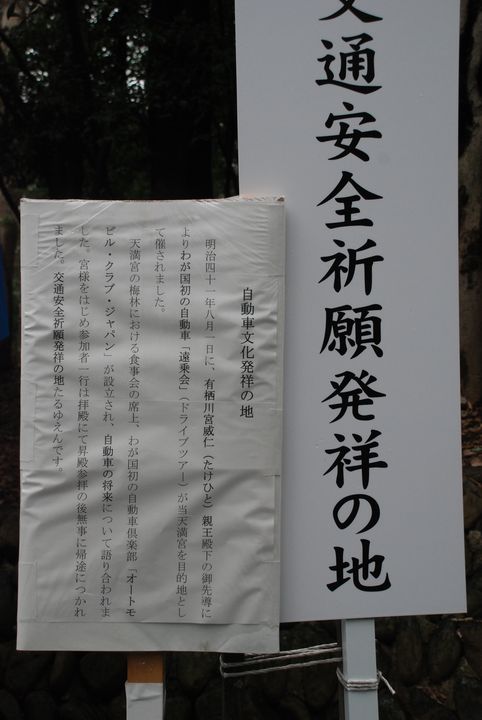 交通安全祈願発祥の地
自動車文化発祥の地
明治四十一年八月一日に、有栖川宮威仁（たけひと）親王殿下の御先導に
よりわが国初の自動車「遠乗会」（ドライブツアー）が当天満宮を目的地とし
て催されました。
天満宮の梅林における食事会の席上、わが国初の自動車倶楽部「オートモ
ビル・クラブ・ジャパン」が設立され、自動車の将来について語り合われま
した。宮様をはじめ参加者一行は拝殿にて昇殿参拝の後無事に帰途につかれ
ました。交通安全祈願発祥の地たるゆえんです。